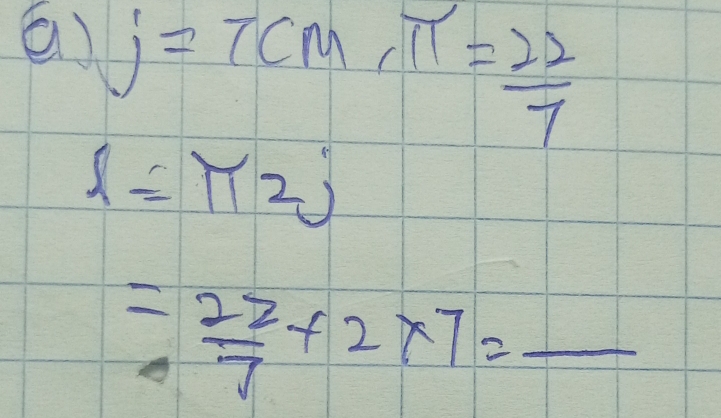 a) j = 7cm, π = 22/7
l = π2j
= 22/7 + 2 x 7 = ___